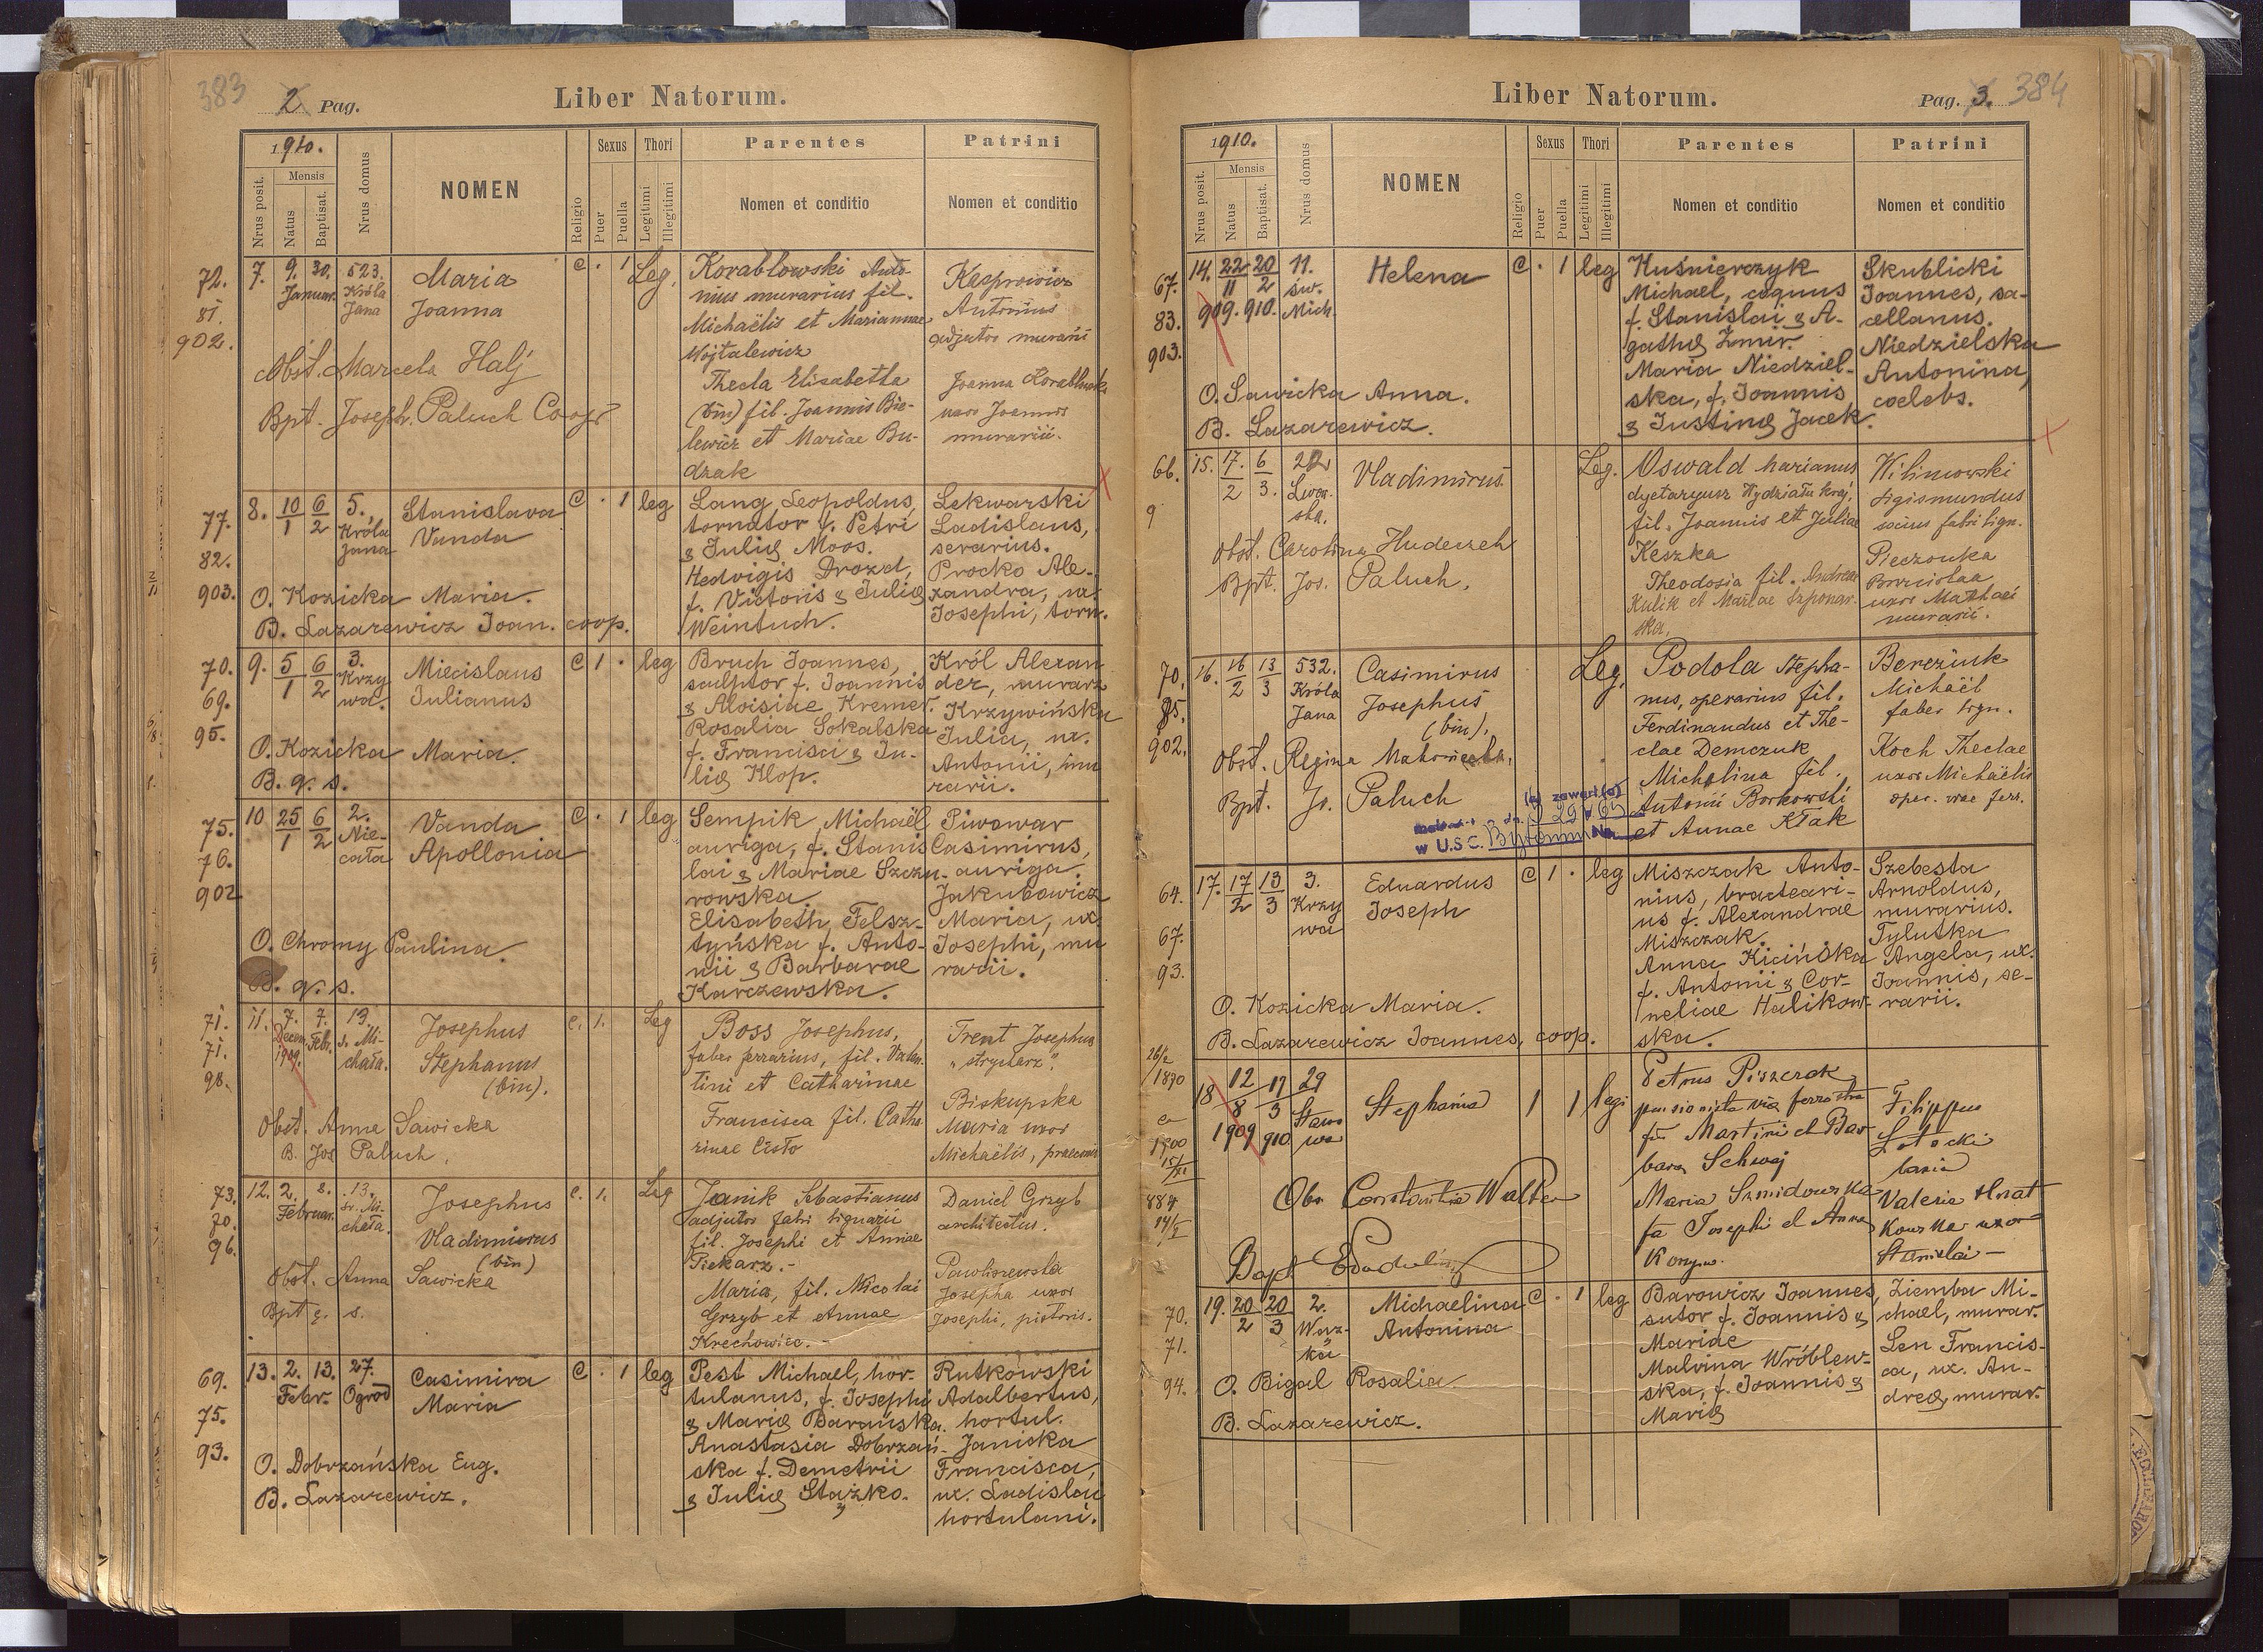 383
2 Pag.
Liber Natorum.
1910.
Mensis
Nrus posit.
Natus
Baptisat.
Nrus domus
NOMEN
Religio
Sexus
Puer
Puella
Thori
Legitimi
Illegitimi
Parentes
Nomen et conditio
Patrini
Nomen et conditio
72.
81.
902.
7. 9. 30. Januar.
523.
Króla
Jana
Maria
Joanna
c . 1 Leg.
Korablowski Anto-
nius murarius fil.
Michaëlis et Mariannae
Wojtalewicz
Thecla Elisabetha
(bin) fil. Joannis Bie-
lewicz et Mariae Bu-
dzak
Kasprowicz
Antonius
adjutor murarii
Joanna
uxor Joannis
murarii.
Obst. Marcela Halj
Bpt. Joseph. Paluch Coop
77.
82.
903.
8. 10/1 6/2
5.
Króla
Jana
Stanislava
Vanda
c . 1 leg
Lang Leopoldus,
tornator f. Petri
& Julię Moos.
Hedvigis Drozd,
f. Victoris & Julię
Weintuch.
Lekwarski
Ladislaus,
serarius.
Procko Ale-
xandra, ux.
Josephi, torn.
O. Kozicka Maria.
B. Lazarewicz Joan. coop.
70.
69.
95.
9. 5/1 6/2
3.
Krzy
wa.
Miecislaus
Julianus
c 1 . leg
Bruch Joannes,
sculptor f. Joannis
& Aloisiae Kremer.
Rosalia Sokalska
f. Francisci & Ju-
lię Klop.
Król Alexan
der, murarz
Krzywińska
Julia, ux.
Antonii, mu
rarii.
O. Kozicka Maria.
B. q. s.
75.
76.
902
10 25/1 6/2
2.
Nie-
cała
Vanda
Apollonia
c . 1 leg
Sempik Michaël
auriga, f. Stanis
lai & Mariae Szczu-
rowska.
Elisabeth Felsz-
tyńska f. Anto-
nii & Barbarae
Karczewska.
Piwowar
Casimirus,
auriga.
Jakubowicz
Maria, ux.
Josephi, mu
rarii.
O. Chromy Paulina.
B. q. s.
71.
71.
98.
11. 7. Decem. 1909. 7. Febr.
13.
s. Mi-
chała.
Josephus
Stephanus
(bin).
c. 1. Leg
Boss Josephus,
faber ferrarius, fil. Valen
tini et Catharinae
Francisca fil. Catha
rinae Cisło
Trent Josephus
„strycharz".
Biskupska
Maria uxor
Michaëlis, praeconis
Obst. Anna Sawicka
B. Jos Paluch.
73.
70.
96.
12. 2. 8. Februar.
13.
św. Mi-
chała.
Josephus
Vladimirus
(bin)
c. 1. Leg
Janik Sebastianus
adjutor fabri lignarii
fil. Josephi et Annae
Piekarz.-
Maria, fil. Nicolai
Grzyb et Annae
Krechowiec.-
Daniel Grzyb
architectus.
Pawliszewska
Josepha uxor
Josephi, pistoris.
Obst. Anna Sawicka
Bpt q. s.
69.
75.
93.
13. 2. 13. Febr.
27.
Ogrod
Casimira
Maria
c . 1 leg
Pest Michael, hor-
tulanus, f. Josephi
& Marię Barańska.
Anastasia Dobrzań-
ska f. Demetrii
& Julię Stażko.
Rutkowski
Adalbertus,
hortul.
Janicka
Francisca,
ux. Ladislai
hortulani.
O. Dobrzańska Eug.
B. Lazarewicz.
Liber Natorum.
Pag. 3. 384
1910.
Mensis
Nrus posit.
Natus
Baptisat.
Nrus domus
NOMEN
Religio
Sexus
Puer
Puella
Thori
Legitimi
Illegitimi
Parentes
Nomen et conditio
Patrini
Nomen et conditio
67.
83.
903.
14. 22/11 909. 20/2 910.
11.
św.
Mich.
Helena
c . 1 leg
Kuśnierczyk
Michael, coquus
f. Stanislai & A-
gathę Żmir.
Maria Niedziel-
ska, f. Joannis
& Justinę Jacek.
Skublicki
Joannes, sa-
cellanus.
Niedzielska
Antonina,
coelebs.
O. Sawicka Anna.
B. Lazarewicz.
66.
9
15. 17./2 6/3.
22
Lwow-
ska.
Vladimirus
Leg.
Oswald Marianus
dyetaryusz Wydziału kraj.
fil. Joannis et Juliae
Keszka
Theodosia fil. Andreae
Kulik et Mariae Szponar-
ska.
Wilimowski
Sigismundus
socius fabri lign.
Pieczonka
Bronislaa
uxor Mathaei
murarii.
Obst. Carolina Hudeczek
Bpt. Jos. Paluch.
70.
85.
902.
16. 16/2 13/3
532.
Króla
Jana
Casimirus
Josephus
(bin).
Leg.
Podola Stepha-
nus, operarius fil.
Ferdinandus et The-
clae Demczuk
Michalina fil.
Antonii Borkowski
et Annae Kłak
Bereziuk
Michaël
faber lign.
Koch Theclae
uxor Michaëlis
oper. viae ferr.
Obst. Regina
Bpt. Jo. Paluch
zawarł(a)
w U.S.C. Bytomiu
64.
67.
93.
17. 17/2 13/3
3.
Krzy
wa
Eduardus
Joseph
c 1 . leg
Miszczak Anto-
nius, bracteari-
us f. Alexandrae
Miszczak.
Anna Kicińska
f. Antonii & Cor-
neliae Halikow-
ska.
Szebesta
Arnoldus,
murarius.
Tylutka
Angela, ux.
Joannis, se-
rarii.
O. Kozicka Maria.
B. Lazarewicz Joannes, coop.
1870
1900
884
18 12/8 1909 17/3 910
29
Stawo
wa
Stephania
1 1 legi
Petrus Piszczak
pensionista via ferrostra
fil Martini et Bar
bara Schwaj
Maria Szmidowska
fa Josephi et Anna
Filippus
Valeria
uxor
Stanislai -
Obs Constantia Walter
Bapt
70.
71.
94.
19. 20/2 20/3
2.
Waz-
ka
Michaelina
Antonina
c . 1 leg
Barowicz Joannes,
sutor f. Joannis &
Mariae
Malvina Wróblew-
ska, f. Joannis &
Marię
Ziemba Mi-
chael, murar.
Len Francis-
ca, ux. An-
dreę, murar.
O. Bigal Rosalia.
B. Lazarewicz.